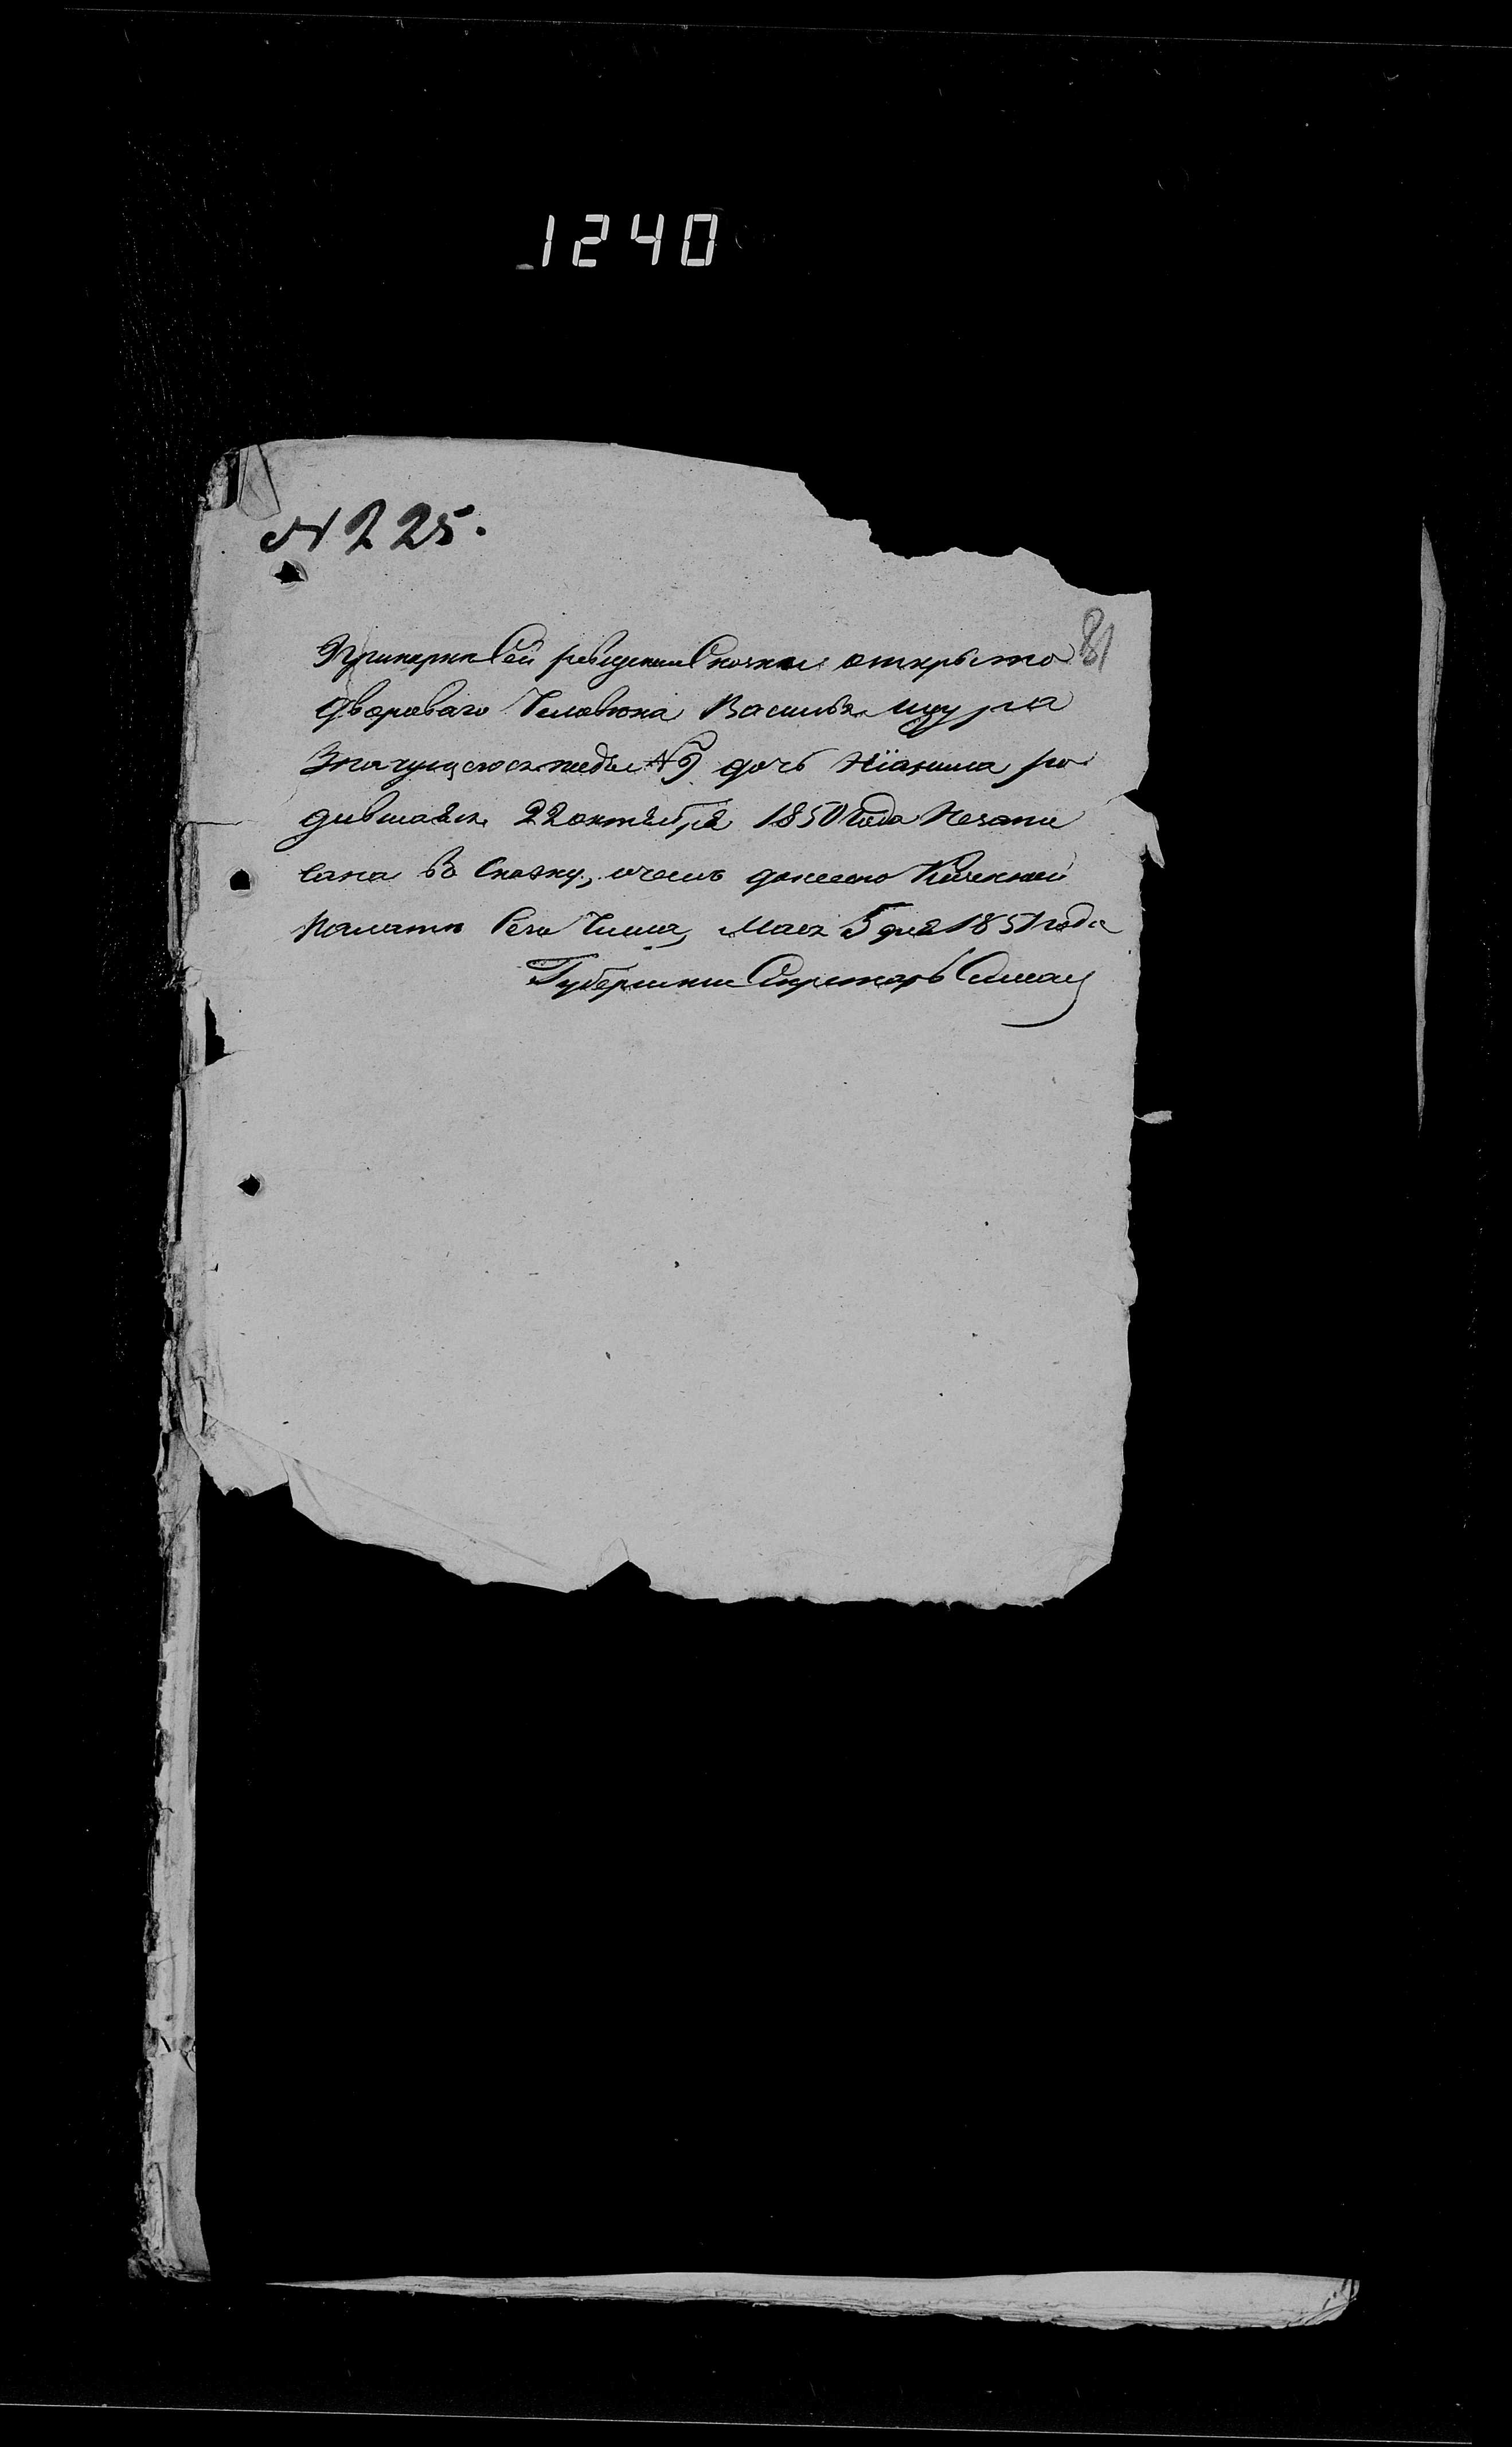 1240
N 225.
81
При перкѣ Сей ревизкой Сказки открыто
дворового Человѣка Василья
Значущегося подъ №9 дочь родившаяся
22 октября 1850 Года Незапи
сана въ Сказку, о чемъ донесено Казенной
Палатѣ Сего Числа, Мая 5 дня 1851 года
Губернскiй Секретарь